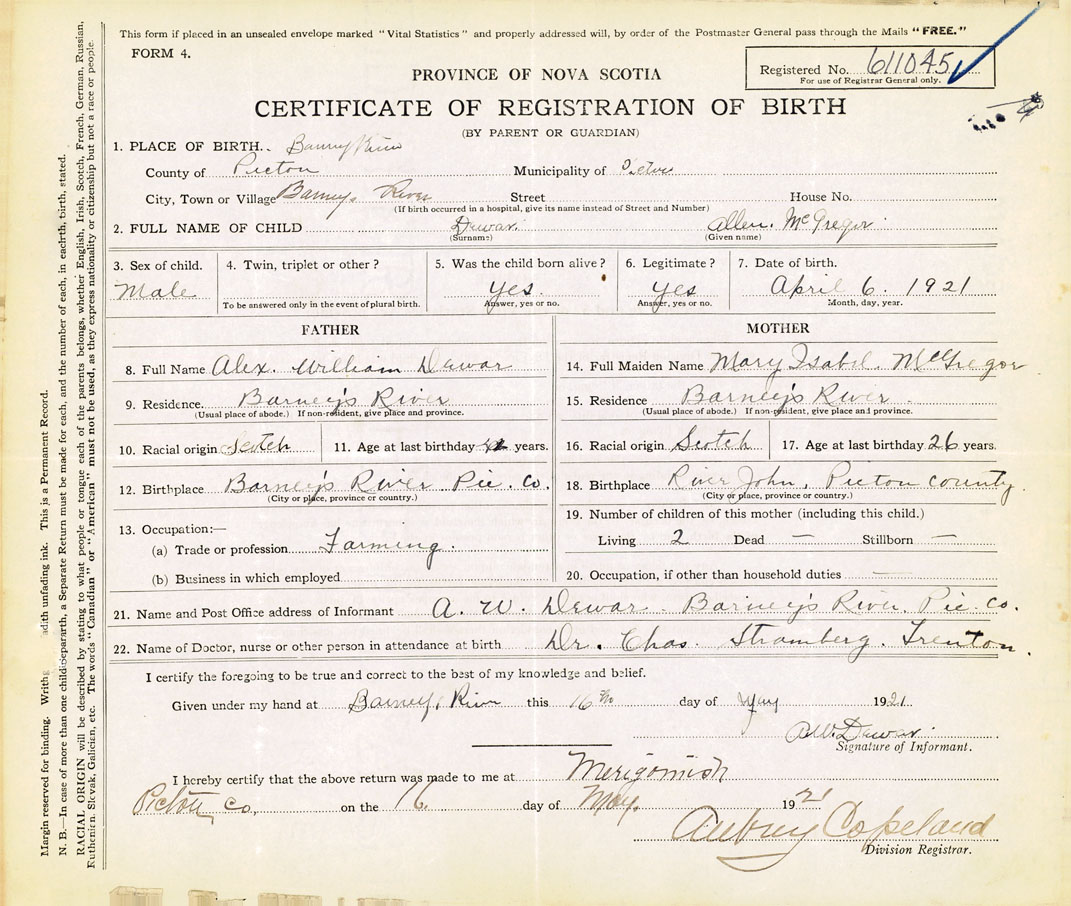 This form if placed in an unsealed envelope marked "Vital Statistics" and properly addressed will, by order of the Postmaster General pass through the Mails "FREE."
FORM 4.
PROVINCE OF NOVA SCOTIA
Registered No. 611045
For use of Registrar General only.
CERTIFICATE OF REGISTRATION OF BIRTH
(BY PARENT OR GUARDIAN)
1. PLACE OF BIRTH. Barneys River
County of Pictou Municipality of Pictou
City, Town or Village Barneys River Street House No.
(If birth occurred in a hospital, give its name instead of Street and Number)
2. FULL NAME OF CHILD Dewar. Allen. McGregor
(Surname) (Given name)
3. Sex of child. 4. Twin, triplet or other? 5. Was the child born alive? 6. Legitimate? 7. Date of birth.
Male yes. yes April 6. 1921
To be answered only in the event of plural birth. Answer, yes or no. Answer, yes or no. Month, day, year.
FATHER
8. Full Name Alex. William Dewar
9. Residence. Barney's River
(Usual place of abode.) If non-resident, give place and province.
10. Racial origin Scotch 11. Age at last birthday years.
12. Birthplace Barney's River Pic. Co.
(City or place, province or country.)
13. Occupation:—
(a) Trade or profession Farming.
(b) Business in which employed
MOTHER
14. Full Maiden Name Mary Isabel. McGregor
15. Residence Barney's River.
(Usual place of abode.) If non-resident, give place and province.
16. Racial origin Scotch 17. Age at last birthday 26 years.
18. Birthplace River John, Pictou County.
(City or place, province or country.)
19. Number of children of this mother (including this child.)
Living 2 Dead — Stillborn —
20. Occupation, if other than household duties —
21. Name and Post Office address of Informant A. W. Dewar. Barney's River. Pic. Co.
22. Name of Doctor, nurse or other person in attendance at birth Dr. Chas. Stramberg. Trenton.
I certify the foregoing to be true and correct to the best of my knowledge and belief.
Given under my hand at Barneys River this 16th day of May 1921.
A.W. Dewar.
Signature of Informant.
I hereby certify that the above return was made to me at Merigomish
Pictou Co. on the 16. day of May. 1921
Aubrey Copeland
Division Registrar.
Margin reserved for binding. Writ adith unfading ink. This is a Permanent Record.
N. B.—In case of more than one child a Separate Return must be made for each, and the number of each, in birth, stated.
RACIAL ORIGIN will be described by stating to what people or tongue each of the parents belongs, whether English, Irish, Scotch, French, German, Russian,
Ruthenian, Slovak, Galician, etc. The words "Canadian" or "American" must not be used, as they express nationality or citizenship but not a race or people.